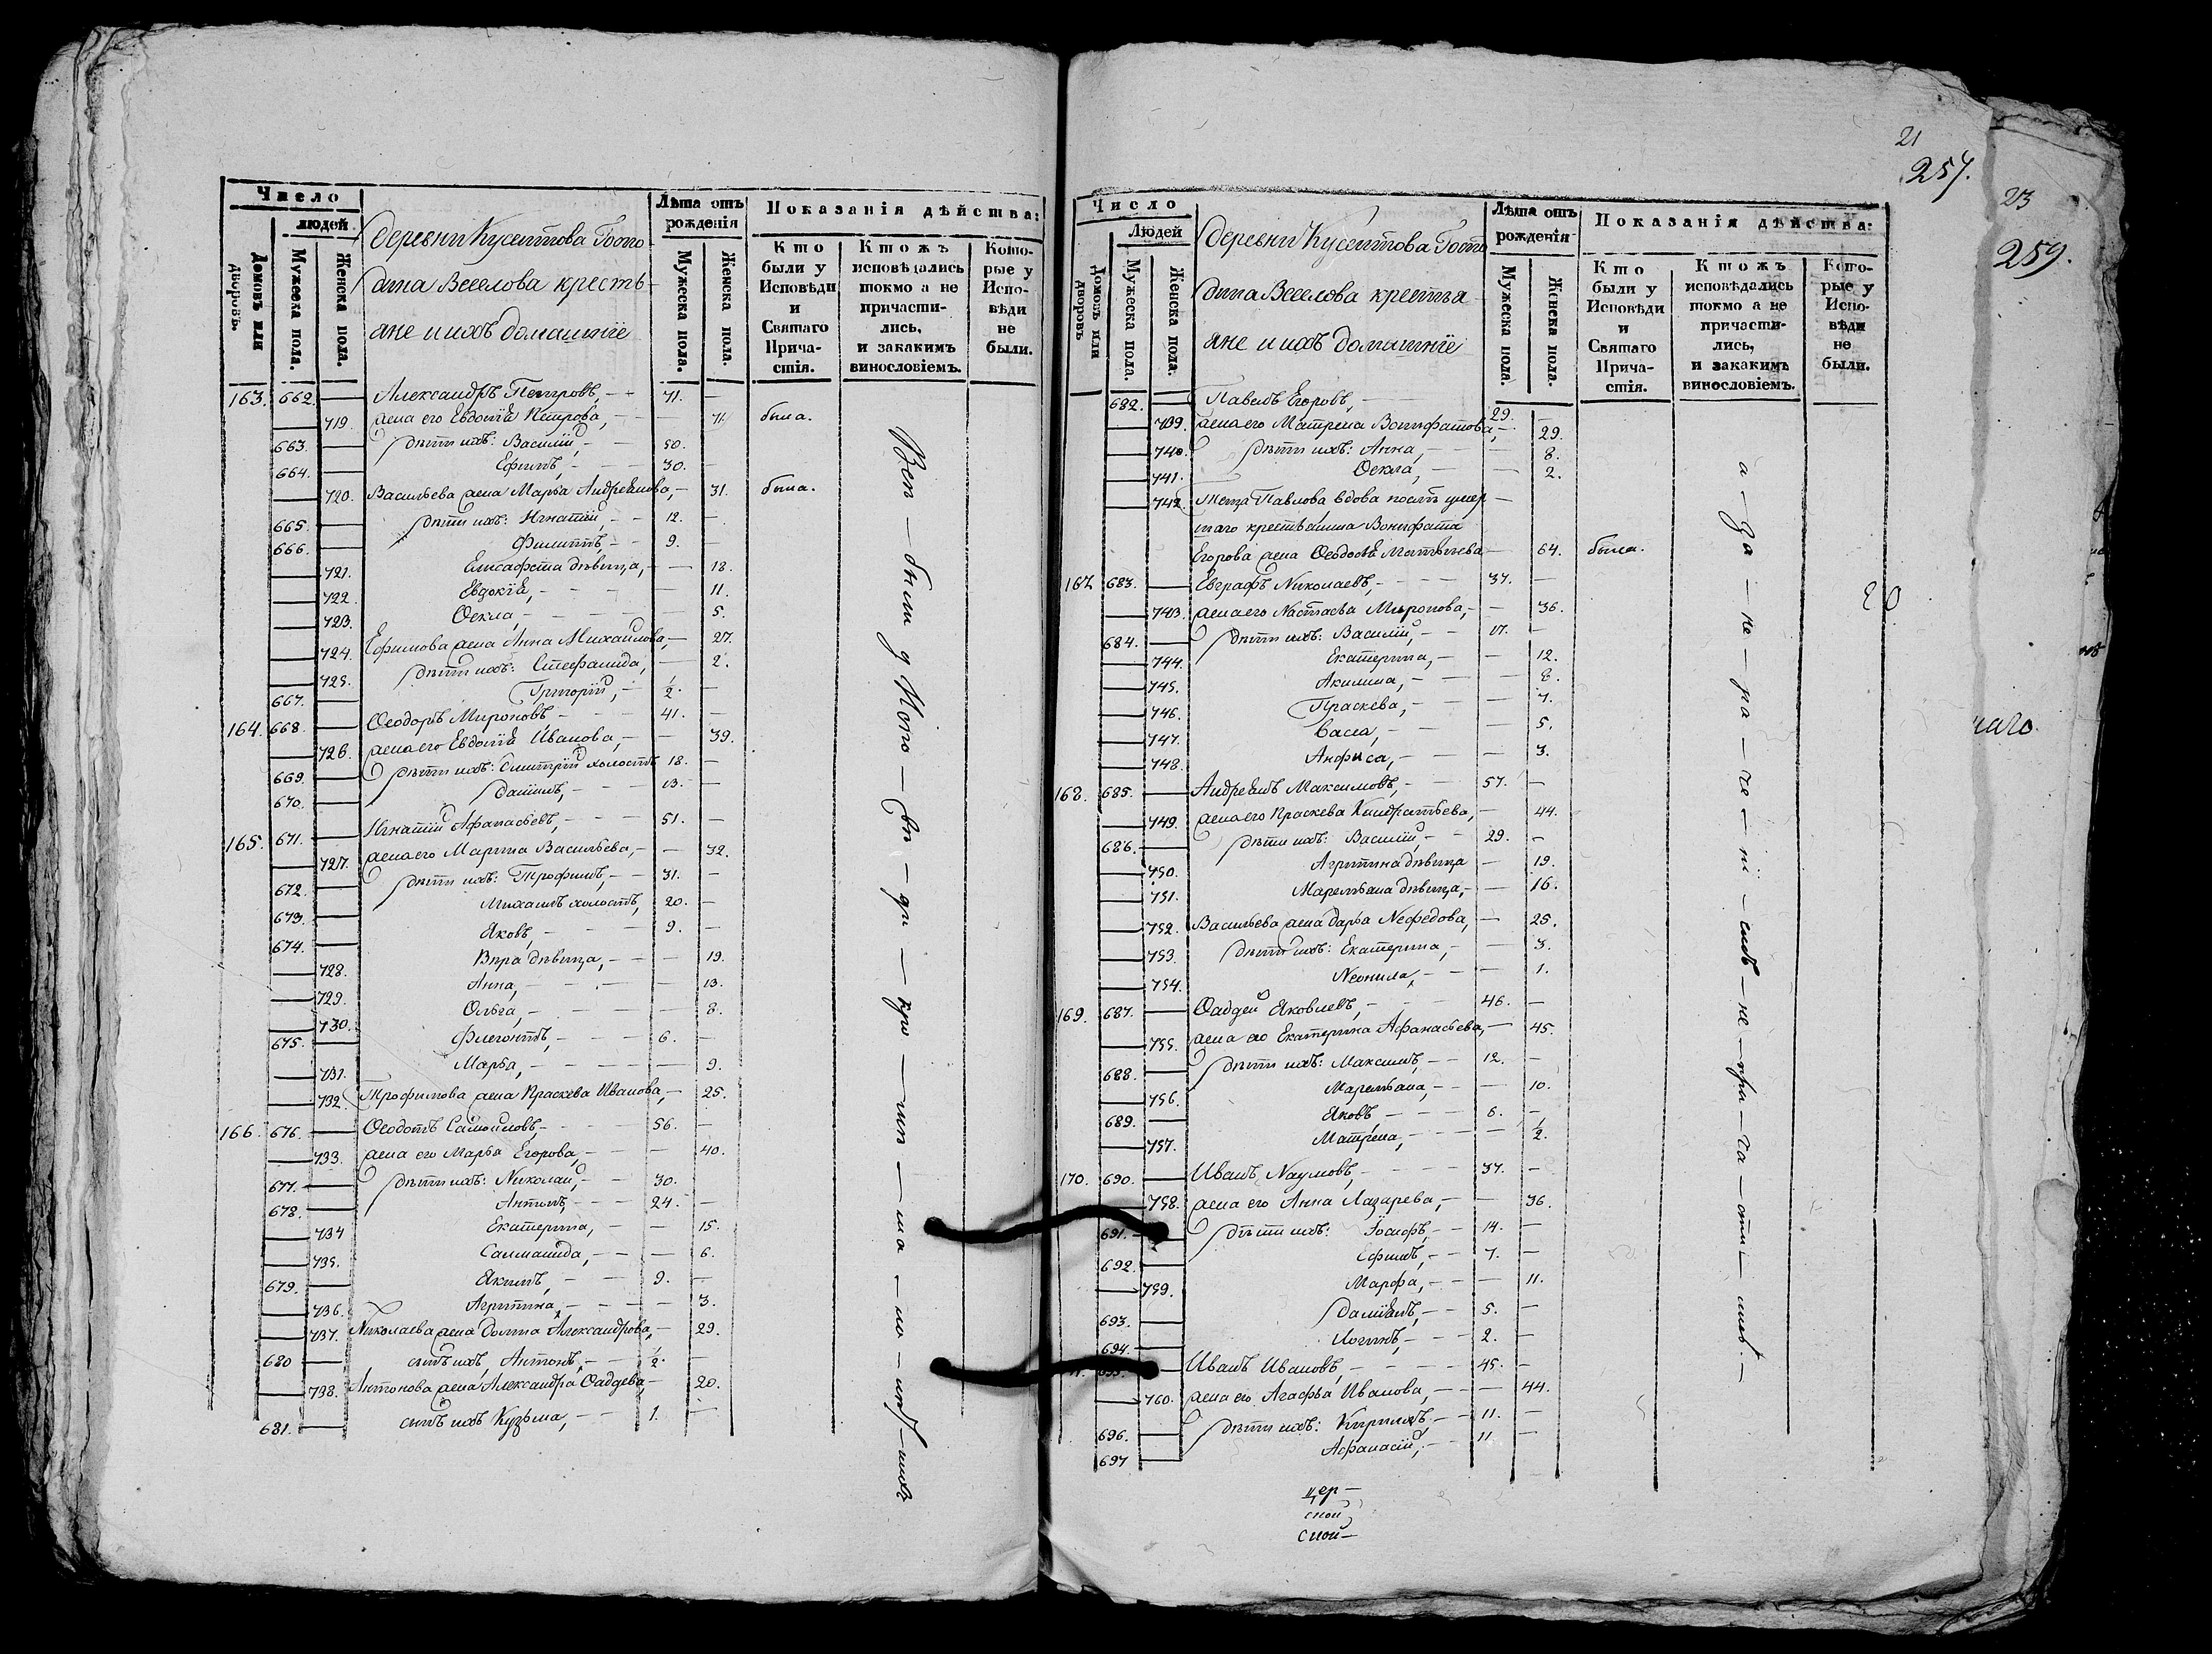 Число
людей
Домовъ или дворовъ.
Мужеска пола.
Женска пола.
деревни Кусептова Госпо-
дина Веселова кресть-
яне и ихъ домашніе
Лѣта отъ рожденія
Мужеска пола.
Женска пола.
Показанія дѣйства:
Кто были у Исповѣди и Святаго Прича-стія.
Ктожъ исповѣдались токмо а не причасти-лись, и закакимъ винословіемъ.
Кото-рые у Испо-вѣди не были.
163. 662. — Александръ Петровъ, — 71. —
— 719. жена его Евдокіа Петрова, — 71 была.
663. — дѣти ихъ: Василій, — 50.
664. — Ефимъ, — 30. —
— 720. Васильева жена Марья Андреянова, — 31. была.
665. — дѣти ихъ: Игнатій, — 12. —
666. — Филиппъ, — 9. —
— 721. Елисафета дѣвица, — 18.
— 722. Евдокіа, — 11.
— 723. Ѳекла, — 5.
— 724. Ефимова жена Анна Михайлова, — 27.
— 725. дѣти ихъ: Стефанида, — 2.
667. — Григорій, — 1/2. —
164. 668. — Ѳеодоръ Мироновъ — 41. —
— 726. жена его Евдокіа Иванова, — 39.
669. — дѣти ихъ: Димитрій холостъ 18. —
670. — Даніилъ, — 13. —
165. 671. — Игнатій Афанасьевъ, — 51. —
— 727. жена его Марина Васильева, — 32.
672. — дѣти ихъ: Трофимъ, — 31. —
673. — Михаилъ холостъ, 20. —
674. — Яковъ, — 9. —
— 728. Вѣра дѣвица, — 19.
— 729. Анна, — 13.
— 730. Ольга, — 8.
675. — Флегонтъ, — 6. —
— 731. Марья, — 9.
— 732. Трофимова жена Праскева Иванова, — 25.
166. 676. — Ѳеодотъ Самоиловъ, — 56. —
— 733. жена его Марья Егорова, — 40.
677. — дѣти ихъ: Николай, — 30.
678. — Антонъ — 24. —
— 734 Екатерина, — 15.
— 735. Саломанида, — 6.
679. — Якимъ, — 9. —
— 736. Агрипина, — 3.
— 737. Николаева жена Домна Александрова, — 29.
680 — сынъ ихъ, Антонъ, — 1/2. —
— 738. Антонова жена Александра Ѳадеева, — 20.
681. — сынъ ихъ Кузьма, — 1. —
Вси — были у Испо — вѣ — ди —
21
257.
Число
Людей
Домовъ или дворовъ
Мужеска пола.
Женска пола.
деревни Кусептова Госпо
дина Веселова крестья
яне и ихъ домашніе
Лѣта отъ рожденія
Мужеска пола.
Женска пола.
Показанія дѣйства:
Кто были у Исповѣди и Святаго Прича-стія.
Ктожъ исповѣдались токмо а не причасти-лись, и закакимъ винословіемъ.
Кото-рые у Испо-вѣди не были.
682. — Павелъ Егоровъ, — 29. —
— 739. жена его Матрена Вонифатова, — 29.
— 740. дѣти ихъ: Анна, — 8.
— 741. Ѳекла, — 2.
— 742. Теща Павлова, вдова послѣ умер —
шаго крестьянина Вонифата
Егорова жена Ѳеодосья Матвѣева — 64. была.
167 683. — Евграфъ Николаевъ, — 37. —
— 743. жена его Настасья Миронова, — 36.
684. — дѣти ихъ: Василій, — 17. —
— 744. Екатерина, — 12.
— 745. Акилина, — 8.
— 746. Праскева, — 7.
— 747. Васса, — 5.
— 748. Анфиса, — 3.
168. 685. — Андреянъ Максимовъ, — 57. —
— 749. жена его Праскева Киндратьева, — 44.
686. — дѣти ихъ: Василій, — 29. —
— 750. Агрипина дѣвица — 19.
— 751. Маремьяна дѣвица, — 16.
— 752. Васильева жена Дарья Нефедова, — 25.
— 753. дѣти ихъ: Екатерина, — 3.
— 754. Неонила, — 1.
169. 687. — Ѳаддей Яковлевъ, — 46. —
— 755. жена его Екатерина Афанасьева, — 45.
688. — дѣти ихъ: Максимъ, — 12. —
— 756. Маремьяна, — 10.
689. — Яковъ, — 6. —
— 757. Матрена, — 1/2.
170. 690. — Иванъ Наумовъ, — 37. —
— 758. жена его Анна Лазарева, — 36.
691. — дѣти ихъ: Іосифъ, — 14. —
692. — Ефимъ, — 7. —
— 759. Марфа, — 11.
693. — Даміянъ, — 5. —
694. — Логинъ, — 2. —
695. — Иванъ Ивановъ, — 45. —
— 760. жена его Агафья Иванова, — 44.
696. — дѣти ихъ: Кирилъ, — 11. —
697 — Афанасій, — 11 —
а — за — не — ра — че — ні — емъ — не — при — ча — сти — лись —
цер —
сной
сной —
23
259.
наго